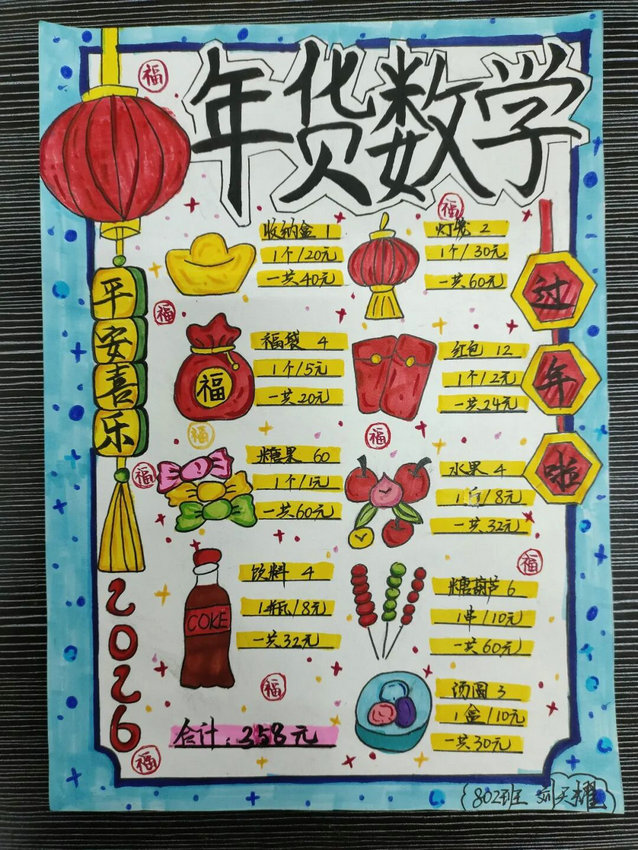 年货数学
福
平安喜乐
2026
过年啦
收纳盒 1
1个/20元
一共40元
灯笼 2
1个/30元
一共60元
福
福
福袋 4
1个/5元
一共20元
福
红包 12
1个/2元
一共24元
福
福
福
糖果 60
1个/1元
一共60元
水果 4
1/8元
一共32元
饮料 4
1瓶/8元
一共32元
COKE
福
糖葫芦 6
1串/10元
一共60元
福
汤圆 3
1盒/10元
一共30元
合计：358元
福
802班